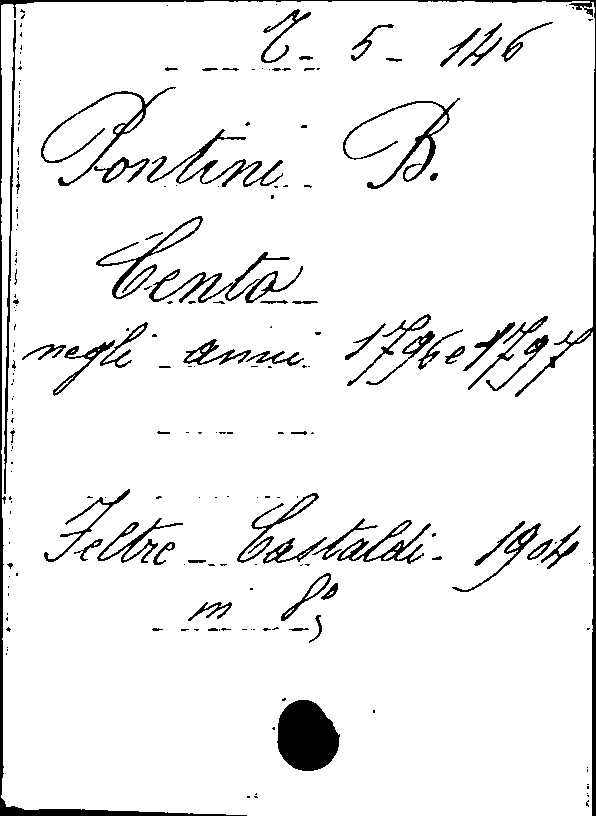 5 - 146
Pontini B.
Cento
negli anni 1796 e 1797
Feltre - Castaldi - 1904
in 8º